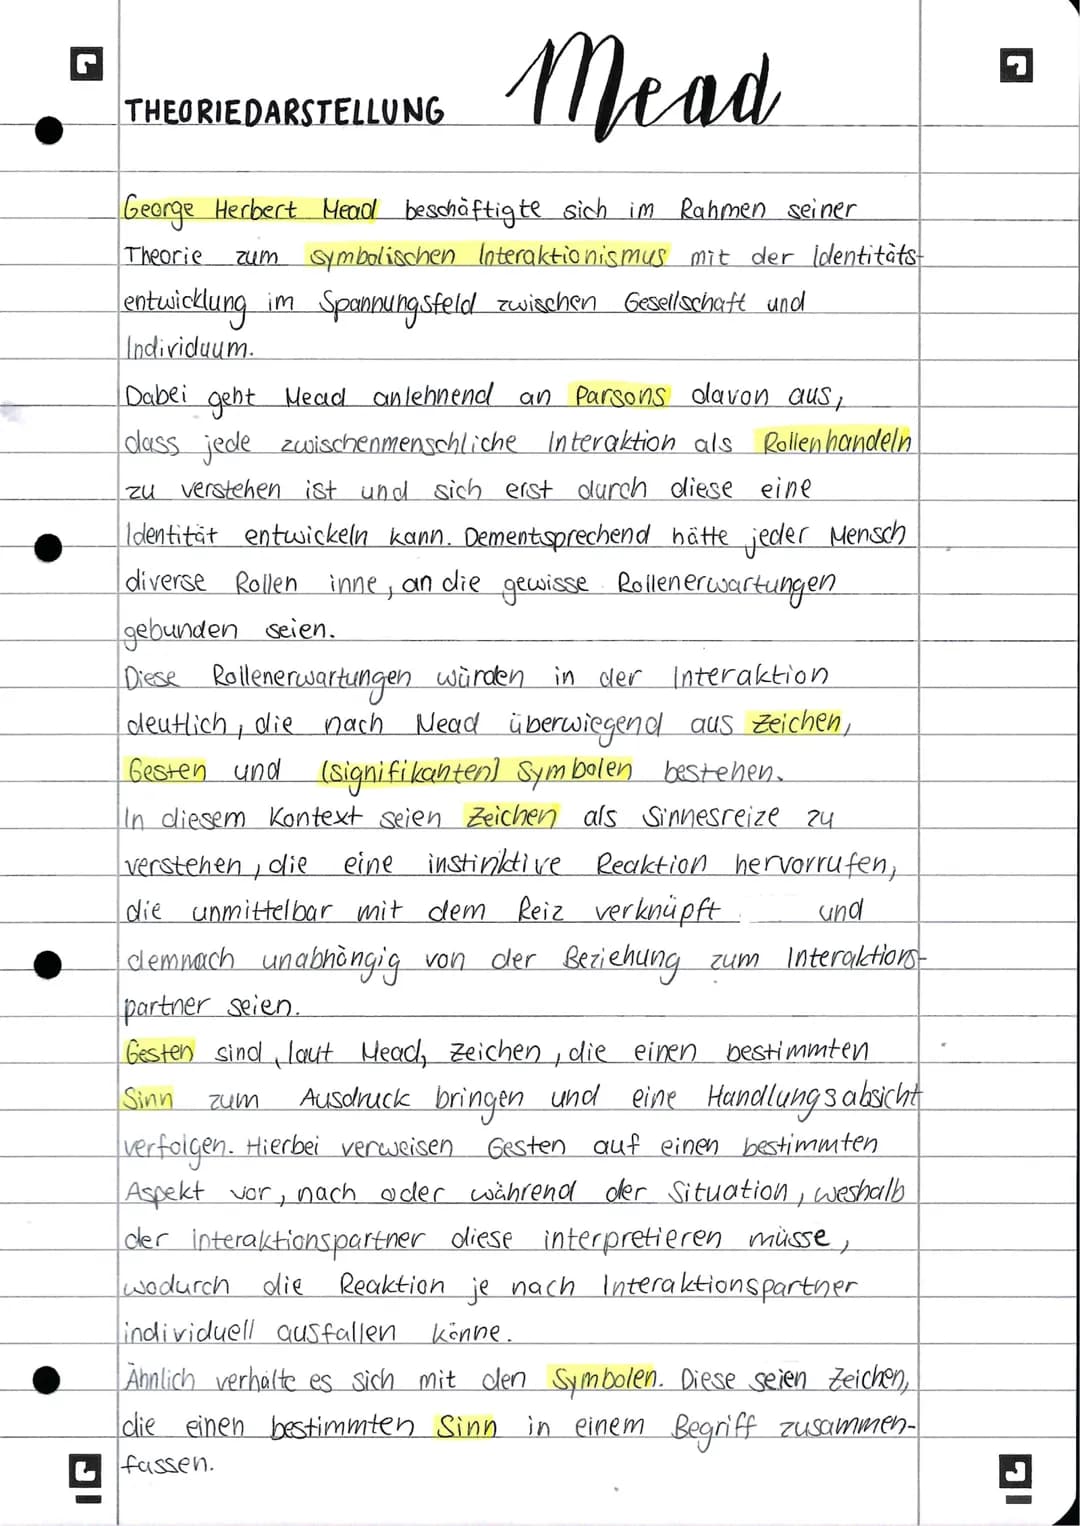 THEORIEDARSTELLUNG Mead
George Herbert Mead beschäftigte sich im Rahmen seiner
Theorie zum symbolischen Interaktionismus mit der Identitäts-
entwicklung im Spannungsfeld zwischen Gesellschaft und
Individuum.
Dabei geht Mead anlehnend an Parsons davon aus,
dass jede zwischenmenschliche Interaktion als Rollenhandeln
zu verstehen ist und sich erst durch diese eine
Identität entwickeln kann. Dementsprechend hätte jeder Mensch
diverse Rollen inne, an die gewisse Rollenerwartungen
gebunden seien.
Diese Rollenerwartungen würden in der Interaktion
deutlich, die nach Mead überwiegend aus Zeichen,
Gesten und (signifikanten) Symbolen bestehen.
In diesem Kontext seien Zeichen als Sinnesreize zu
verstehen, die eine instinktive Reaktion hervorrufen,
die unmittelbar mit dem Reiz verknüpft und
demnach unabhängig von der Beziehung zum Interaktions-
partner seien.
Gesten sind, laut Mead, Zeichen, die einen bestimmten
Sinn zum Ausdruck bringen und eine Handlungsabsicht
verfolgen. Hierbei verweisen Gesten auf einen bestimmten
Aspekt vor, nach oder während der Situation, weshalb
der Interaktionspartner diese interpretieren müsse,
wodurch die Reaktion je nach Interaktionspartner
individuell ausfallen könne.
Ähnlich verhalte es sich mit den Symbolen. Diese seien Zeichen,
die einen bestimmten Sinn in einem Begriff zusammen-
fassen.